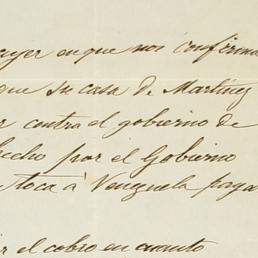 ayer en que nos confirma
que su casa de Martínez
contra el gobierno de
hecho por el Gobierno
toca á Venezuela paga
el cobro en cuanto